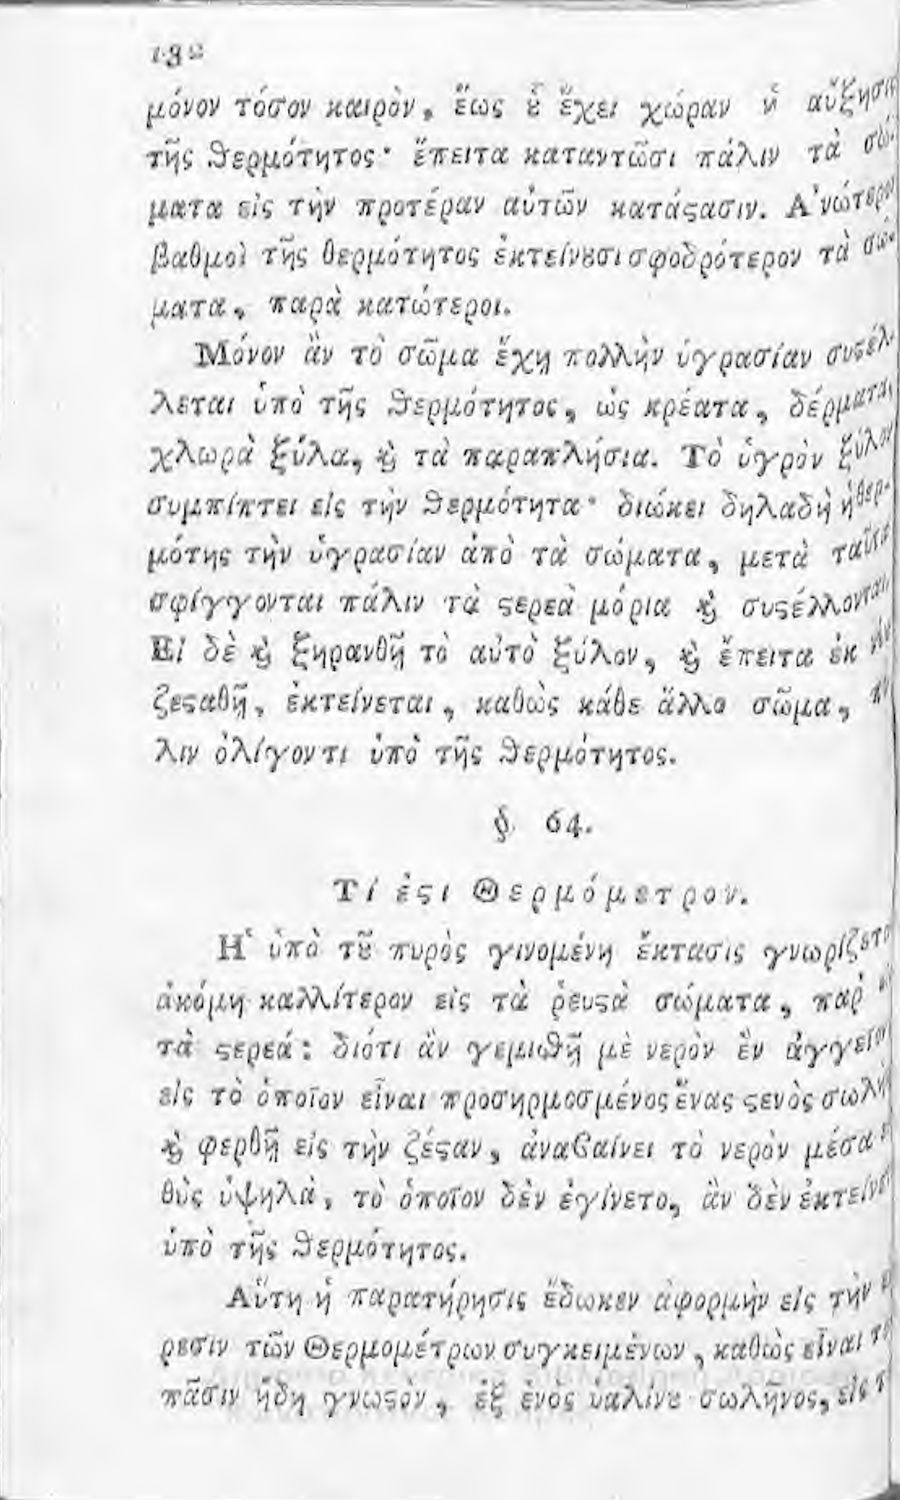 132
μόνον τόσον καιρὸν, ἕως ȣ̓ ἔχει χώραν ἡ αὔξησις
τῆς ϑερμότητος· ἔπειτα καταντῶσι πάλιν τὰ σώ-
ματα εἰς τὴν προτέραν αὐτῶν κατάϛασιν. Ἀνώτεροι
βαθμοὶ τῆς θερμότητος ἐκτείνȣσι σφοδρότερον τὰ σώ-
ματα, παρὰ κατώτεροι.
Μόνον ἂν τὸ σῶμα ἔχῃ πολλὴν ὑγρασίαν συϛέλ-
λεται ὑπὸ τῆς ϑερμότητος, ὡς κρέατα, δέρματα,
χλωρὰ ξύλα, ϗ τὰ παραπλήσια. Τὸ ὑγρὸν ξύλον
συμπίπτει εἰς τὴν ϑερμότητα· διώκει δηλαδὴ ἡ θερ-
μότης τὴν ὑγρασίαν ἀπὸ τὰ σώματα, μετὰ ταῦτα
σφίγγονται πάλιν τὰ ϛερεὰ μόρια ϗ συϛέλλονται.
Εἰ δὲ ϗ ξηρανθῇ τὸ αὐτὸ ξύλον, ϗ ἔπειτα ἐκ
ζεϛαθῇ, ἐκτείνεται, καθὼς κάθε ἄλλο σῶμα,
λιν ὀλίγον τι ὑπὸ τῆς ϑερμότητος.
§. 64.
Τί ἐϛι Θερμόμετρον.
Ἡ ὑπὸ τȣ͂ πυρὸς γινομένη ἔκτασις γνωρίζετα
ἀκόμη καλλίτερον εἰς τὰ ῥευϛὰ σώματα, παρ
τὰ ϛερεά: διότι ἂν γεμισθῇ μὲ νερὸν ἓν ἀγγεῖον
εἰς τὸ ὁποῖον εἶναι προσηρμοσμένος ἕνας ϛενὸς σωλὴ
ϗ φερθῇ εἰς τὴν ζέϛαν, ἀναβαίνει τὸ νερὸν μέσα
θὺς ὑψηλὰ, τὸ ὁποῖον δὲν ἐγίνετο, ἂν δὲν ἐκτείνε
ὑπὸ τῆς ϑερμότητος.
Αὕτη ἡ παρατήρησις ἔδωκεν ἀφορμὴν εἰς τὴν
ρεσιν τῶν Θερμομέτρων συγκειμένων, καθὼς εἶναι
πᾶσιν ἤδη γνωϛὸν, ἐξ ἑνὸς ὑαλίνȣ σωλῆνος, εἰς